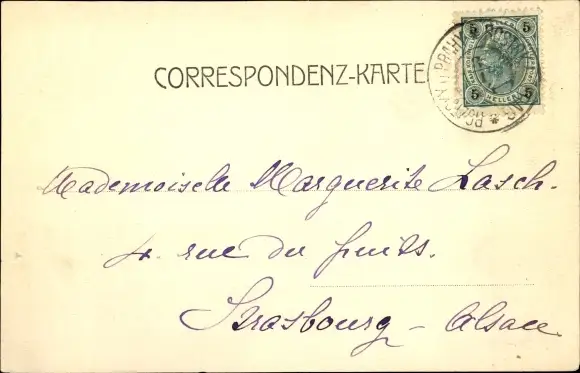 CORRESPONDENZ-KARTE
5 5
HELLER
5 5
Mademoiselle Marguerite Lasch.
4. rue du puits.
Strasbourg - Alsace